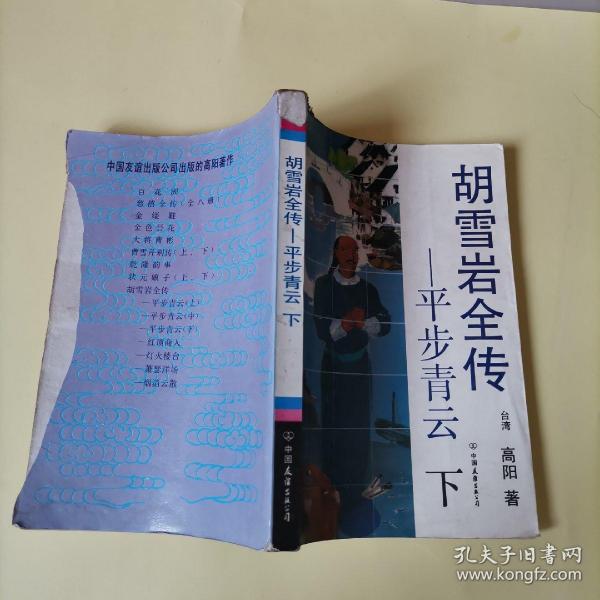 中国友谊出版公司出版的高阳著作
百花洲
慈禧全传（全八册）
金缕鞋
金色昙花
大将曹彬
曹雪芹别传（上、下）
乾隆韵事
状元娘子（上、下）
胡雪岩全传
—平步青云（上）
—平步青云（中）
—平步青云（下）
—红顶商人
—灯火楼台
—萧瑟洋场
—烟消云散
胡雪岩全传—平步青云 下
中国友谊出版公司
胡雪岩全传
—平步青云 下
台湾 高阳 著
中国友谊出版公司
孔夫子旧书网
www.kongfz.com